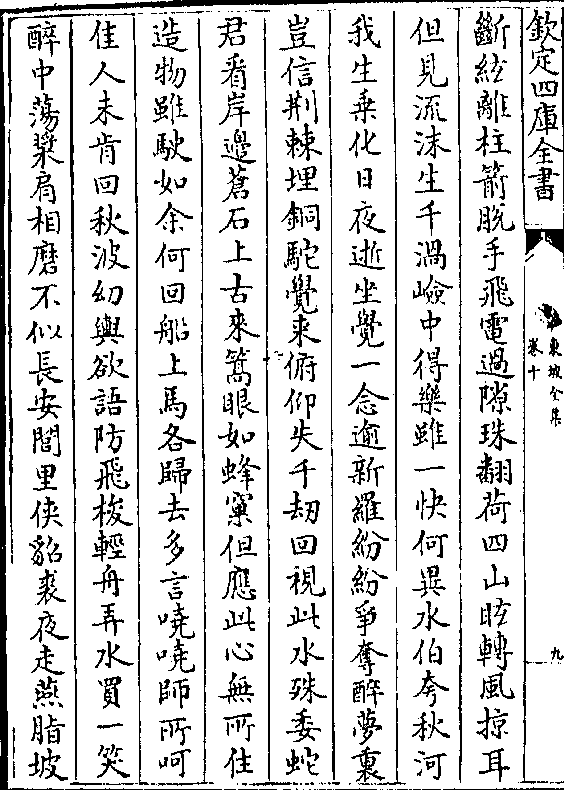 欽定四庫全書
東坡全集
卷十
九
斷絃離柱箭脫手飛電過隙珠翻荷四山眩轉風掠耳
但見流沫生千渦嶮中得樂雖一快何異水伯夸秋河
我生乗化日夜逝坐覺一念逾新羅紛紛爭奪醉夢裏
豈信荆棘埋銅駝覺來俯仰失千刼回視此水殊委蛇
君看岸邊蒼石上古來篙眼如蜂窠但應此心無所住
造物雖駛如余何回船上馬各歸去多言嘵嘵師所呵
佳人未肯回秋波幼輿欲語防飛梭輕舟弄水買一笑
醉中蕩槳肩相磨不似長安閭里俠貂裘夜走燕脂坡